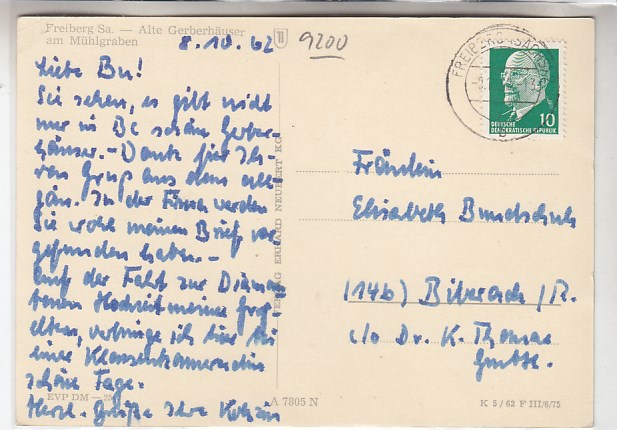 Freiberg Sa. — Alte Gerberhäuser
am Mühlgraben
8.10.62
9200
Liebe Bu!
Sie sehen, es gibt nicht
nur in BC schöne Gerber-
häuser. - Dank für Ih-
ren Gruß aus dem All-
gäu. In der Firma werden
Sie wohl meinen Brief vor-
gefunden haben. -
Auf der Fahrt zur Diaman-
tenen Hochzeit meiner Groß-
eltern, verbringe ich hier bei
einer Klassenkameradin
schöne Tage.
Herzl. Grüße Ihre
EVP DM —
VERLAG ERHARD NEUBERT KG
A 7805 N
K 5/62 F III/6/75
FREIBERG (SACHS)
b
10
DEUTSCHE
DEMOKRATISCHE REPUBLIK
Fräulein
Elisabeth Bundschuh
(14b) Biberach/R.
c/o Dr. K. Thomae
GmbH.